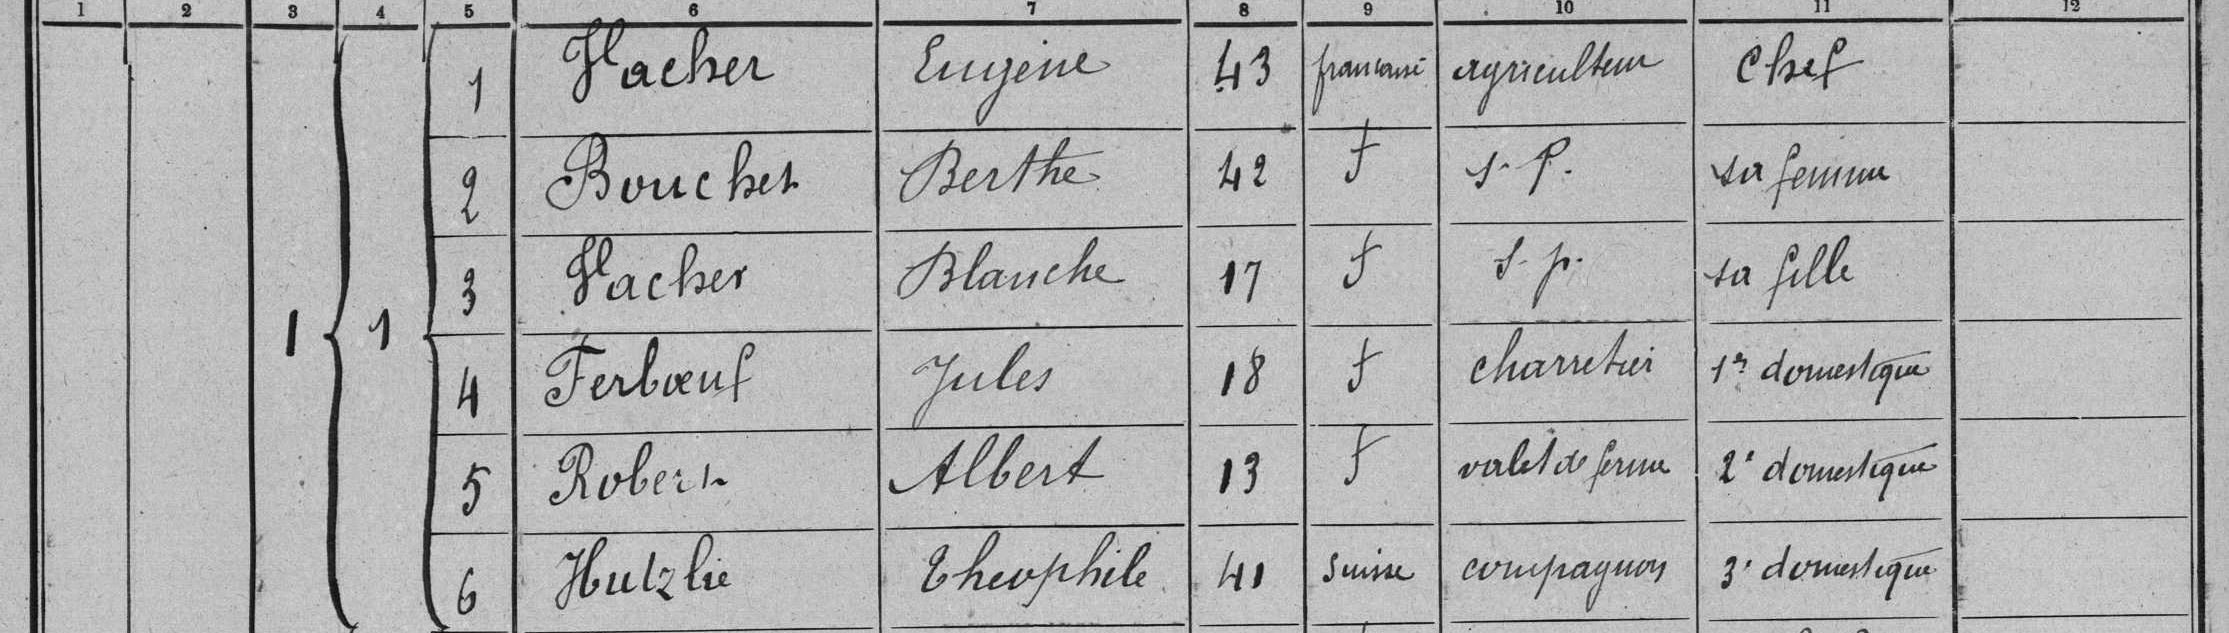 1 2 3 4 5 6 7 8 9 10 11 12
1 Vacher Eugène 43 française agriculteur Chef
2 Bouchet Berthe 42 f s. p. sa femme
3 Vacher Blanche 17 f s. p. sa fille
1 1
4 Ferbœuf Jules 18 f charretier 1er domestique
5 Robert Albert 13 f valet de ferme 2e domestique
6 Hutzlie Théophile 41 Suisse compagnon 3e domestique